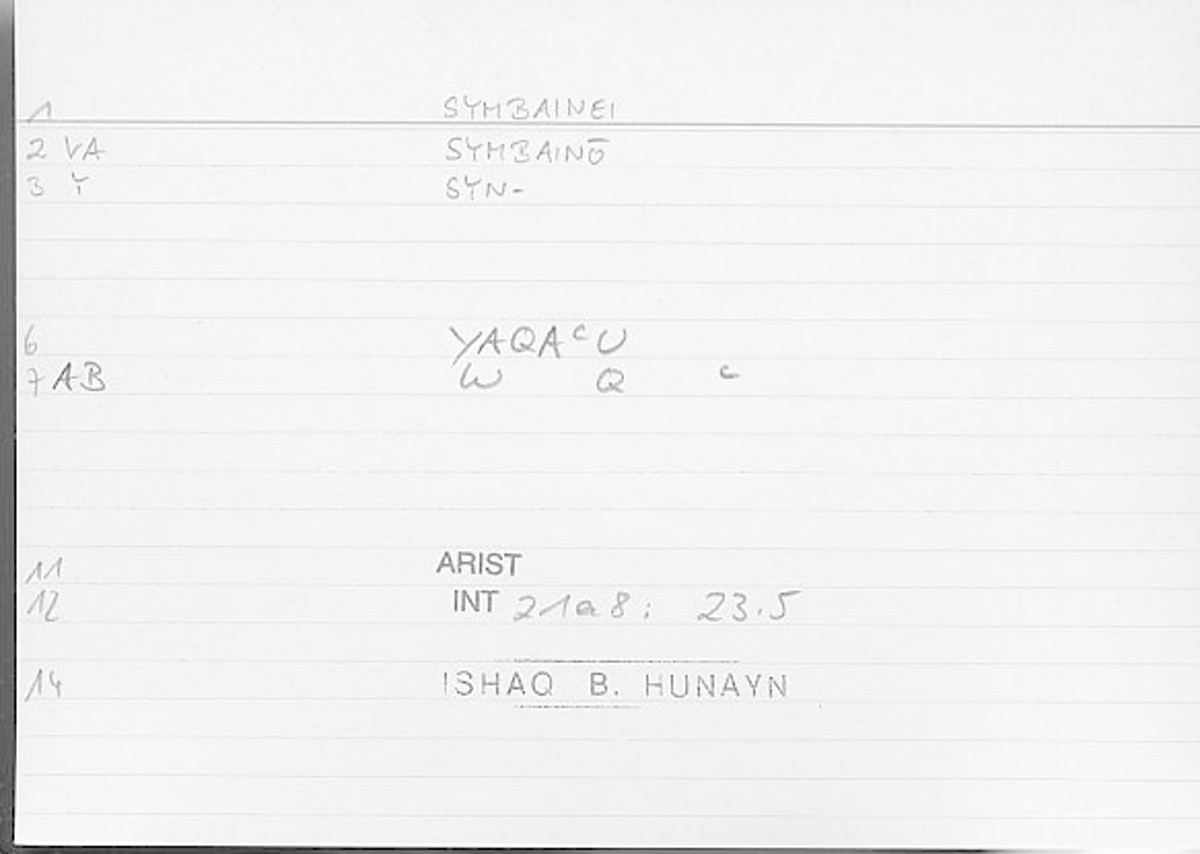 1 SYMBAINEI
2 VA SYMBAINŌ
3 Y SYN-
6 YAQAᶜU
7 AB W Q ᶜ
11 ARIST
12 INT 21a8; 23.5
14 ISHAQ B. HUNAYN